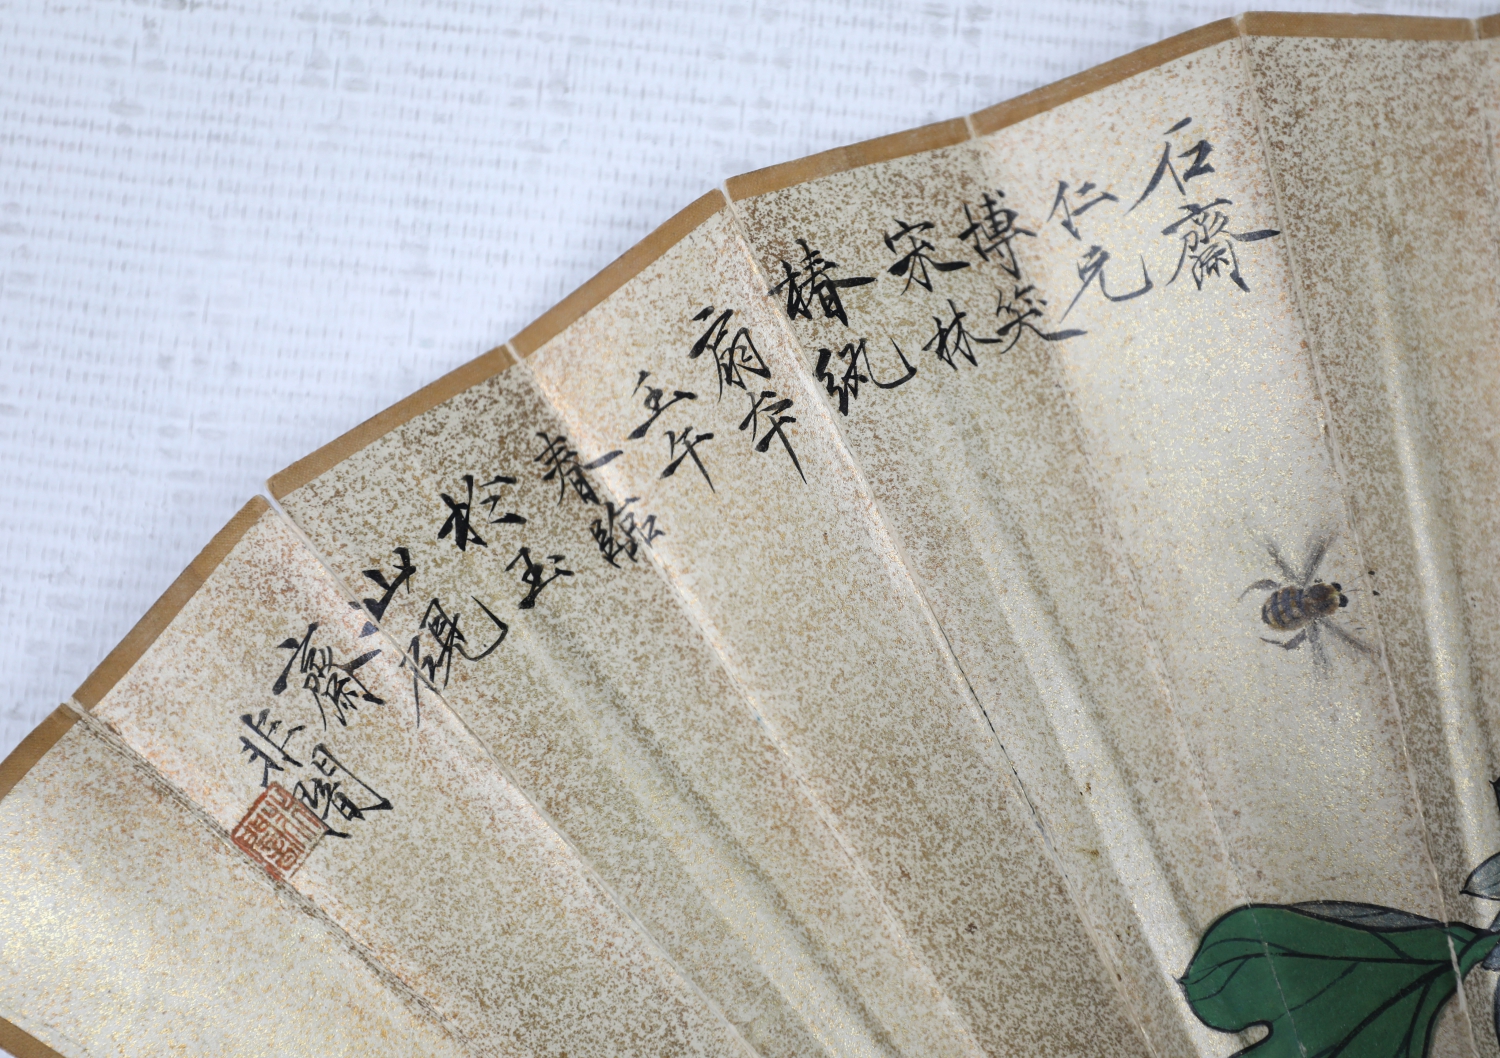 石齋
仁兄
博笑
宋林
椿紈
扇夲
壬午
春臨
於玉
山硯
齋
非闇